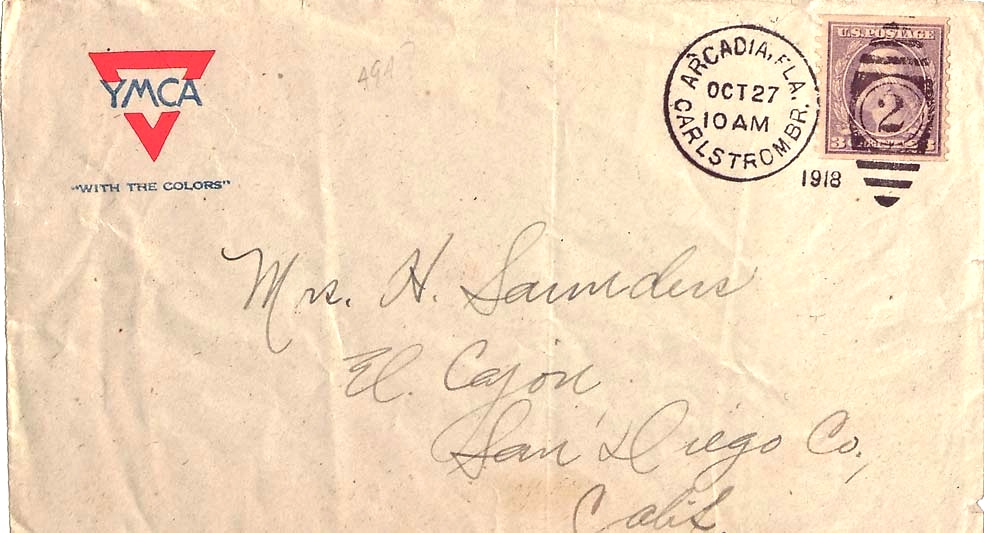 YMCA
"WITH THE COLORS"
491
ARCADIA, FLA.
OCT 27
10 AM
CARLSTROM BR.
1918
U.S. POSTAGE
2
3 3
Mrs. H. Saunders
El Cajon,
San Diego Co.,
Calif